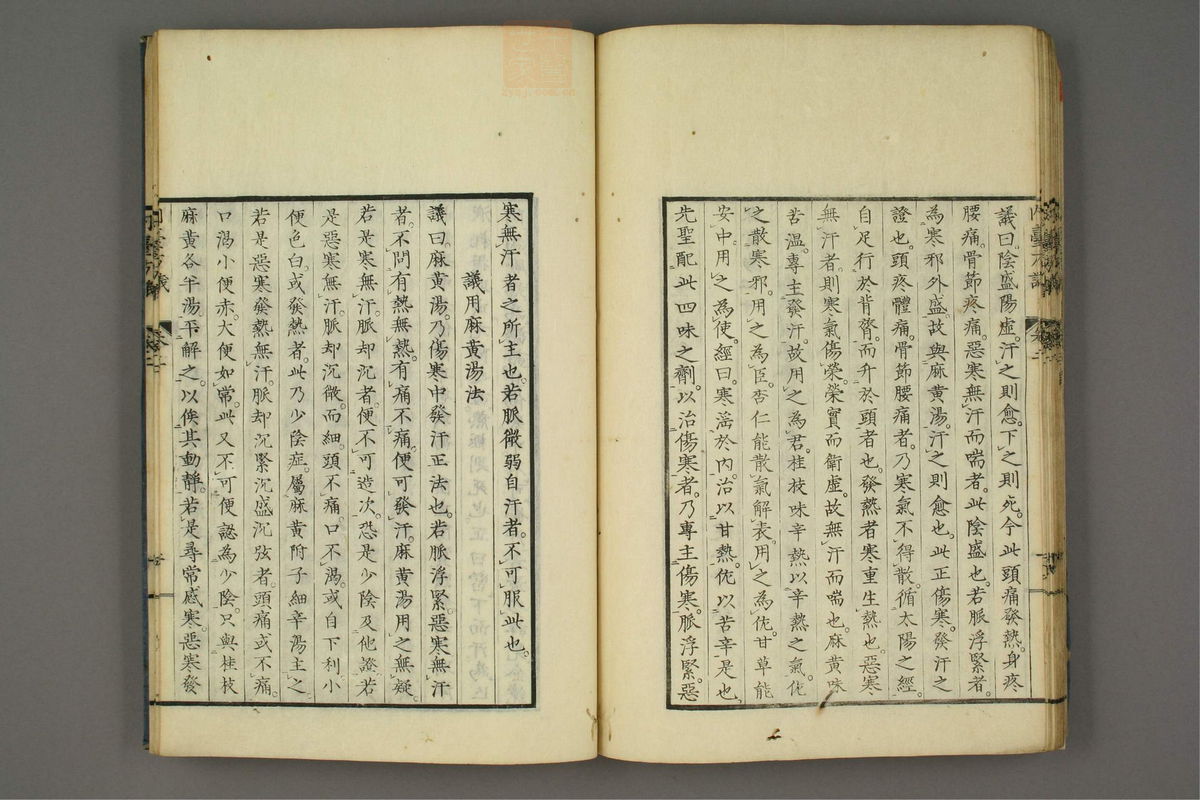 議曰陰盛陽虛。汗之則愈。下之則死。今此頭痛發熱。身疼
腰痛。骨節疼痛。惡寒無汗而喘者。此陰盛也。若脈浮緊者。
為寒邪外盛。故與麻黃湯。汗之則愈也。此正傷寒。發汗之
證也。頭疼體痛。骨節腰痛者。乃寒氣不得散。循太陽之經。
自足行於背膂。而升於頭者也。發熱者寒重生熱也。惡寒
無汗者。則寒氣傷榮。榮實而衛虛。故無汗而喘也。麻黃味
苦溫。專主發汗。故用之為君。桂枝味辛熱。以辛熱之氣。佐
之散寒邪。用之為臣。杏仁能散氣解表。用之為佐。甘草能
安中。用之為使。經曰。寒淫於內。治以甘熱。佐以苦辛是也。
先聖配此四味之劑。以治傷寒者。乃專主傷寒。脈浮緊。惡
寒無汗者之所主也。若脈微弱自汗者。不可服此也。
議用麻黃湯法
議曰。麻黃湯。乃傷寒中發汗正法也。若脈浮緊。惡寒無汗
者。不問有熱無熱。有痛不痛。便可發汗。麻黃湯用之無疑。
若是寒無汗。脈却沉者。便不可造次。恐是少陰及他證。若
是惡寒無汗。脈却沉微。而細。頭不痛。口不渴。或自下利。小
便色白。或發熱者。此乃少陰症。屬麻黃附子細辛湯主之。
若是惡寒發熱無汗。脈却沉緊沉盛沉弦者。頭痛或不痛。
口渴小便赤。大便如常。此又不可便認為少陰。只與桂枝
麻黃各半湯。平解之。以俟其動靜。若是尋常感寒。惡寒發